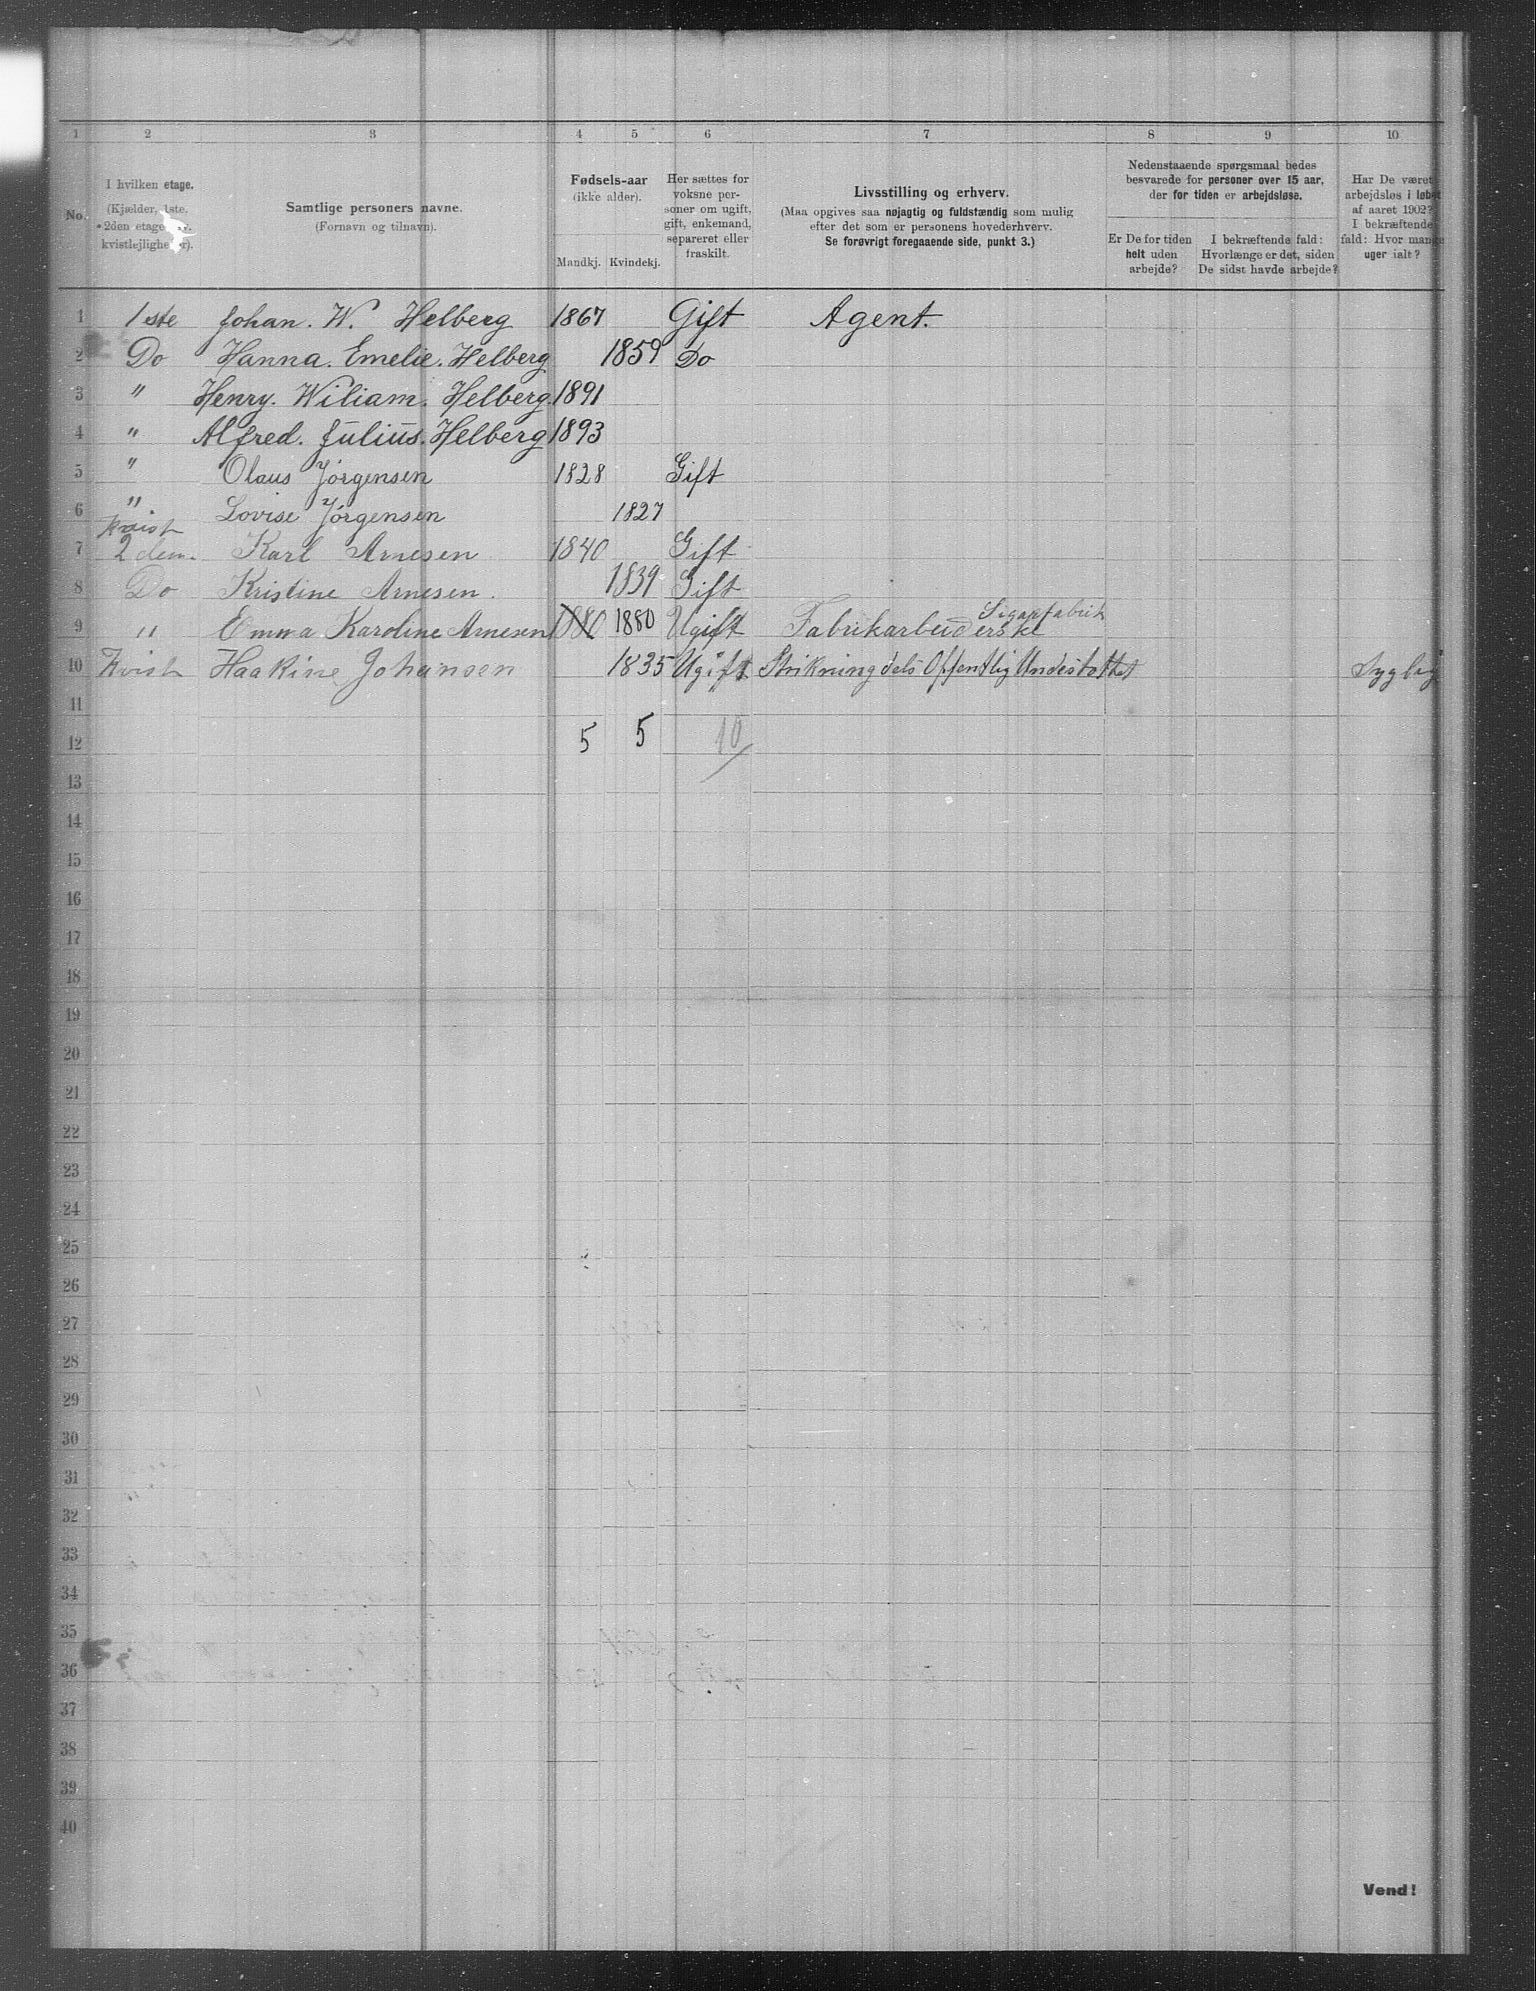 1 2 3 4 5 6 7 8 9 10
No. I hvilken etage. (Kjælder, 1ste, 2den etage kvistlejlighe r).
Samtlige personers navne. (Fornavn og tilnavn).
Fødsels-aar (ikke alder). Mandkj. Kvindekj.
Her sættes for voksne per-soner om ugift, gift, enkemand, separeret eller fraskilt.
Livsstilling og erhverv.
(Maa opgives saa nøjagtig og fuldstændig som mulig
efter det som er personens hovederhverv.
Se forøvrigt foregaaende side, punkt 3.)
Nedenstaaende spørgsmaal bedes
besvarede for personer over 15 aar,
der for tiden er arbejdsløse.
Er De for tiden helt uden arbejde?
I bekræftende fald: Hvorlænge er det, siden De sidst havde arbejde?
Har De været arbejdsløs i løbet af aaret 1902? I bekræftende fald: Hvor mange uger ialt?
1 1ste Johan. W. Helberg 1867 Gift Agent.
2 Do Hanna. Emelie. Helberg 1859 Do
3 " Henry. Wiliam. Helberg. 1891
4 " Alfred. Julius. Helberg 1893
5 " Olaus Jörgensen 1828 Gift
6 " Lovise Jörgensen 1827
Kvist
7 2den. Karl Arnesen 1840 Gift
8 Do Kristine Arnesen. 1839 Gift
9 " Emma Karoline Arnesen 1880 1880 Ugift Fabrikarbeiderske Sigarfabrik
10 Kvist Haakine Johansen 1835 Ugift Strikning dels Offentlig Understøttet Syglig
11
12 5 5 10
13
14
15
16
17
18
19
20
21
22
23
24
25
26
27
28
29
30
31
32
33
34
35
36
37
38
39
40
Vend!